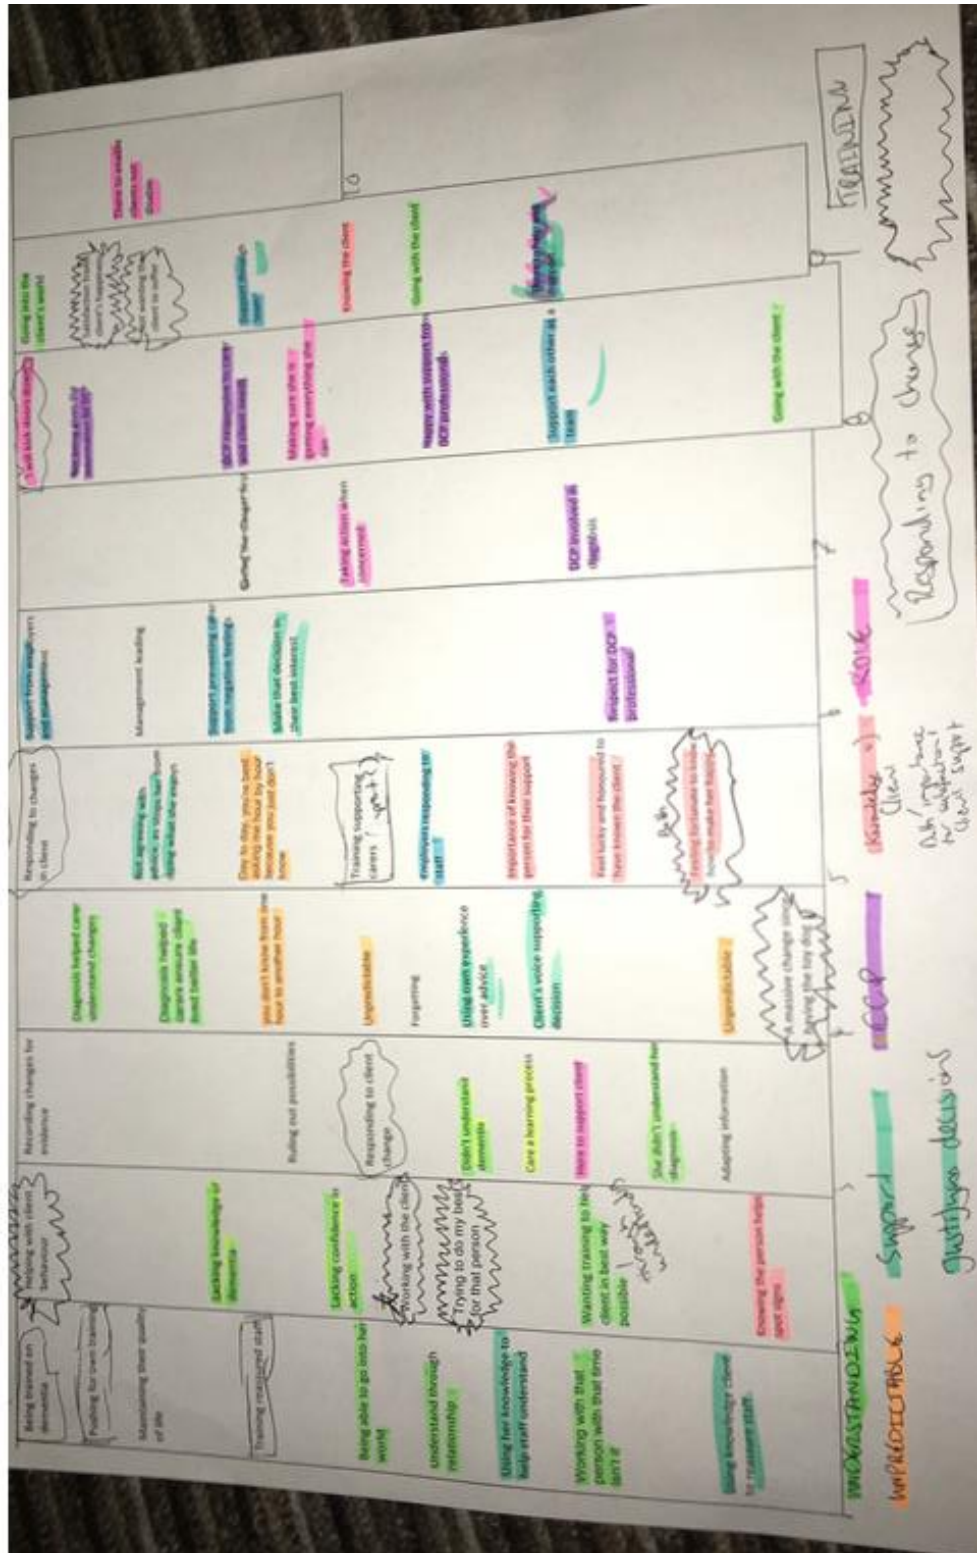 Being trained on
dementia
Pushing for own training
Maintaining their quality
of life
Training reassured staff
Being able to go into her
world
Understand through
relationship
Using her knowledge to
help staff understand
Working with that
person with that time
isn't it
Using knowledge client
to reassure staff
Helping with client
behaviour
Lacking knowledge of
dementia
Lacking confidence in
action
Working with the client
Trying to do my best
for that person
Wanting training to help
client in best way
possible
Knowing the person helps
spot signs
Recording changes for
evidence
Ruling out possibilities
Responding to client
change
Didn't understand
dementia
Care a learning process
Here to support client
She didn't understand her
diagnosis
Adapting information
3
Diagnosis helped carer
understand changes
Diagnosis helped
carers ensure client
lived better life
you don't know from one
hour to another hour
Unpredictable
Forgetting
Using own experience
over advice
Client's voice supporting
decision
Unpredictable
A massive change since
buying the toy dog
Responding to changes
in client
Not agreeing with
advice as stops her from
doing what she enjoys
Day to day, you're best
asking me hour by hour
because you just don't
know
Training supporting
carers
Employers responding to
staff
Importance of knowing the
person for their support
Feel lucky and honoured to
have known the client
Feeling fortunate to know
how to make her happy
5
Support from employers
and management
Management leading
Support preventing carer
own negative feelings
Make that decision in
their best interest
Respect for DCP
professional
6
Taking action when
concerned
DCP involved in
diagnosis
7
I will kick doors down
DCP responsive to carer
and client need
Making sure she is
getting everything she
can
Happy with support from
DCP professionals
Support each other as a
team
Going with the client
8
Going into the
client's world
Satisfaction from
client's happiness
Not wanting the
client to suffer
Knowing the client
Going with the client
9
There to enable
clients not
disable
10
UNDERSTANDING
UNPREDICTABLE
Support
justifying decisions
DCP
Knowledge of
client
ROLE
Responding to change
TRAINING